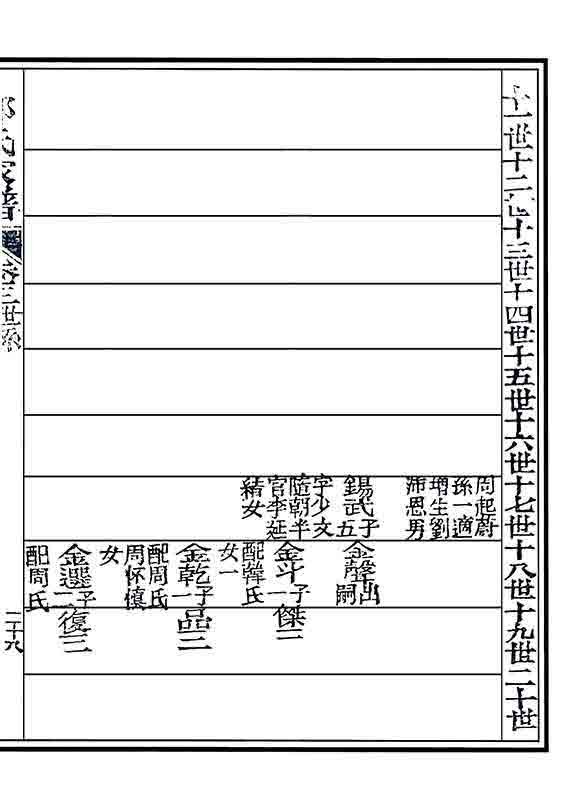 十一世十二世十三世十四世十五世十六世十七世十八世十九世二十世
周起蔚
孫一適
增生劉
沛恩男
錫武子五
字少文
隨朝半
官李延
緒女
金聲出嗣
金斗子一
配韓氏
女一
傑三
金乾子一
配周氏
周怀慎
女
品三
金選子二
配周氏
復三
氏家譜
卷三世系
二十八